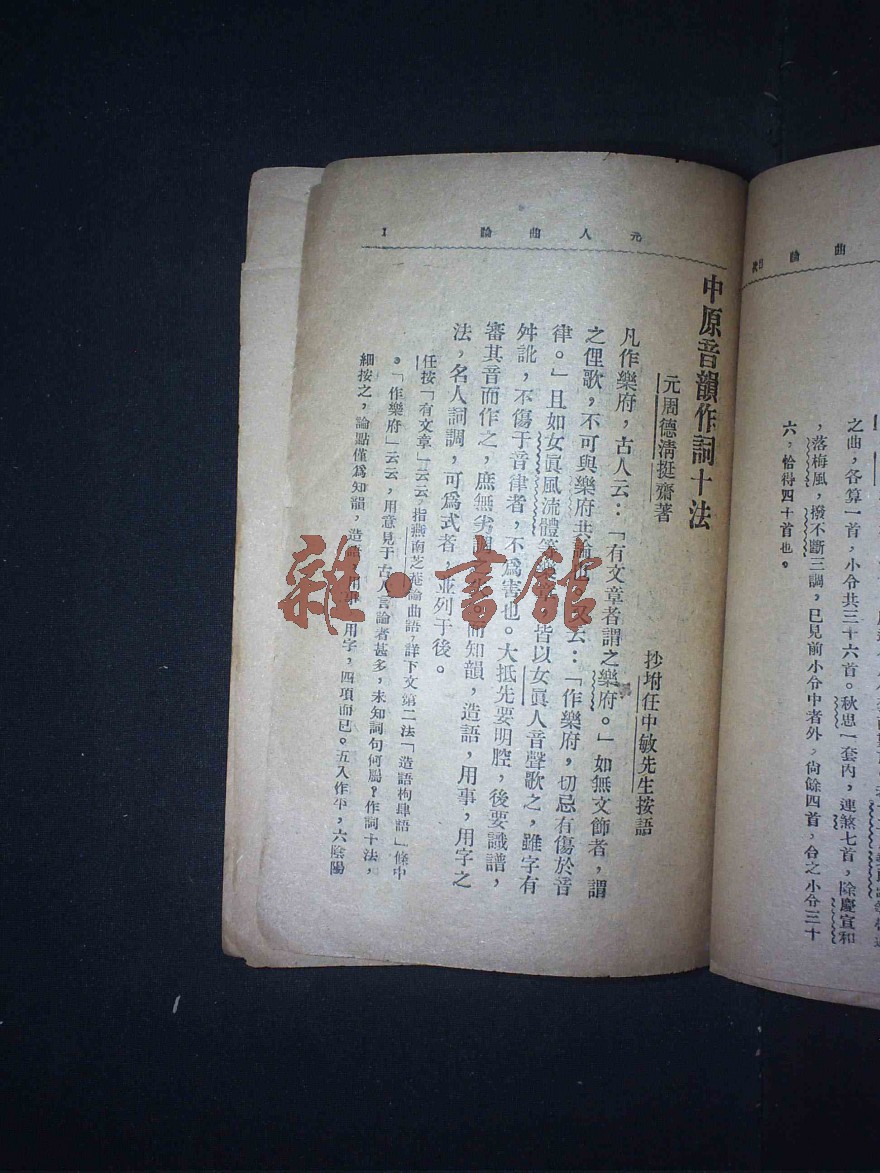 曲論
之曲，各算一首，小令共三十六首。秋思一套內，連煞七首，除慶宣和
，落梅風，撥不斷三調，已見前小令中者外，尙餘四首，合之小令三十
六，恰得四十首也。
元人曲論 1
中原音韻作詞十法
元周德淸挺齋著
抄坿任中敏先生按語
凡作樂府，古人云：「有文章者謂之樂府。」如無文飾者，謂
之俚歌，不可與樂府共論也。又云：「作樂府，切忌有傷於音
律。」且如女眞風流體等 皆以女眞人音聲歌之，雖字有
舛訛，不傷于音律者，不爲害也。大抵先要明腔，後要識譜，
審其音而作之，庶無劣 而知韻，造語，用事，用字之
法，名人詞調，可爲式者，並列于後。
任按「有文章」云云，指燕南芝菴論曲語，詳下文第二法「造語拘肆語」條中
。「作樂府」云云，用意見于古人言論者甚多，未知詞句何屬？作詞十法，
細按之，論點僅爲知韻，造語，用事，用字，四項而已。五入作平，六陰陽
雜·書館